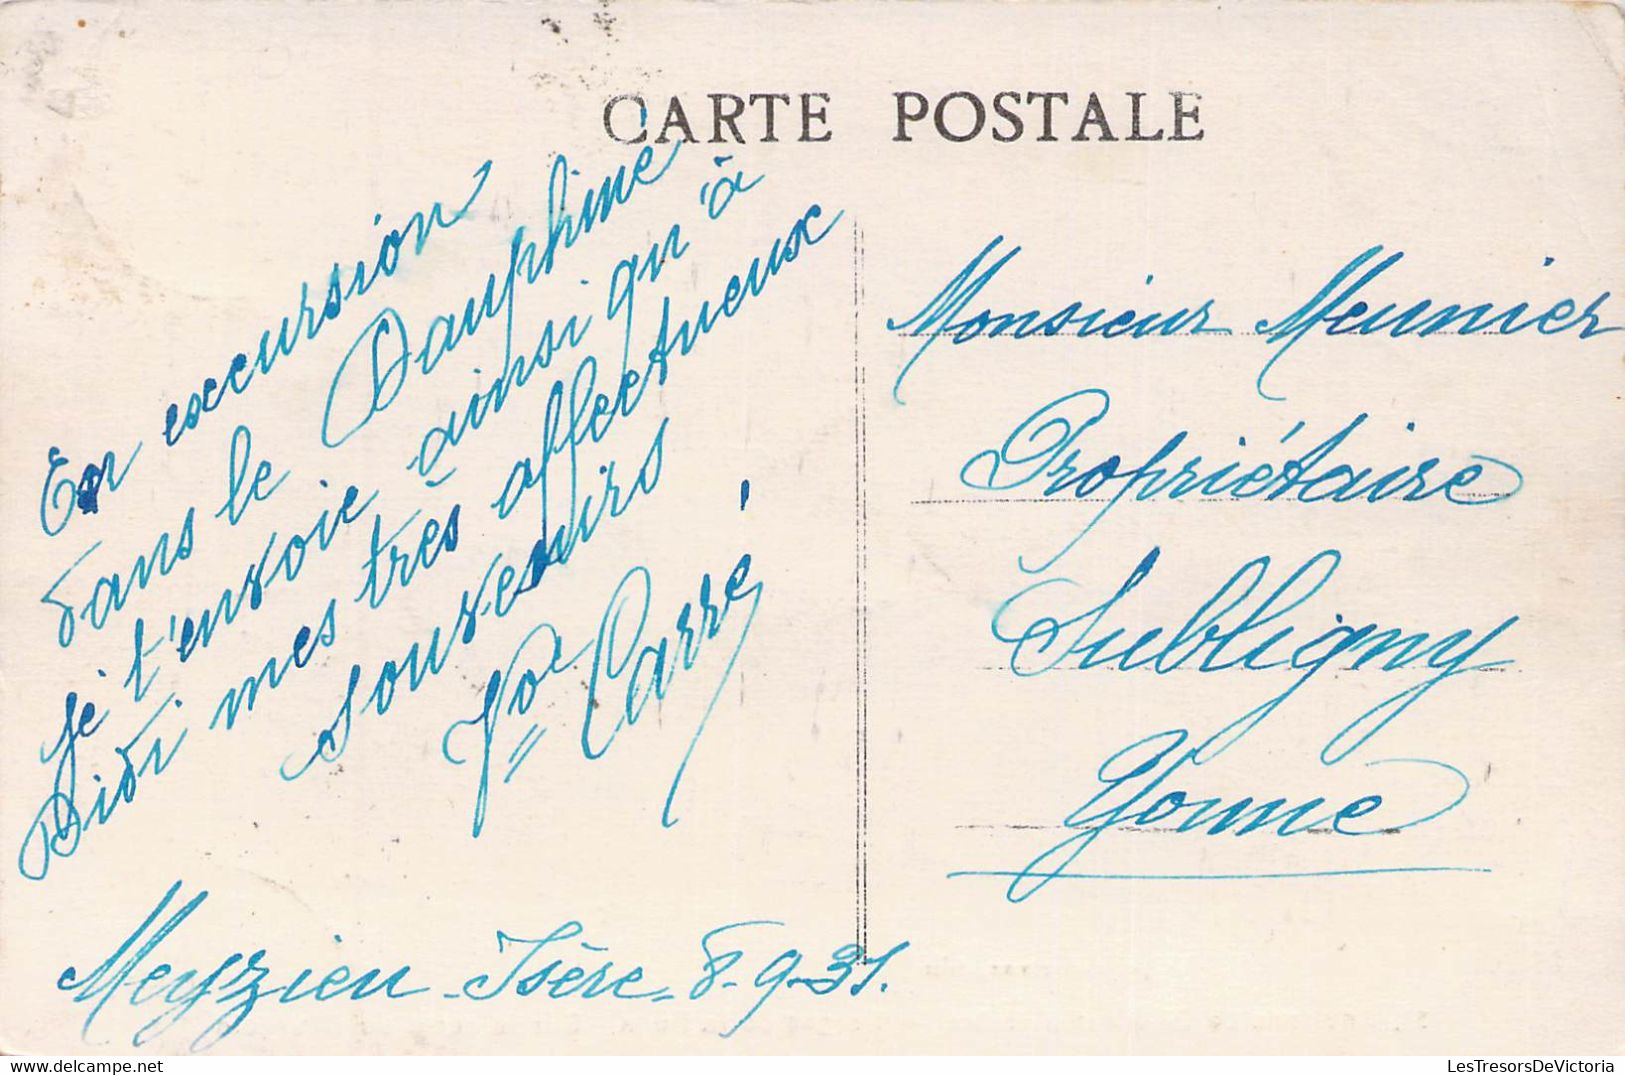 CARTE POSTALE
En excursion
dans le Dauphiné
je t'envoie ainsi qu'à
Didi mes très affectueux
souvenirs
Carré
Meyzieu - Isère - 8-9-31.
Monsieur Meunier
Propriétaire
Subligny
Yonne
LesTresorsDeVictoria